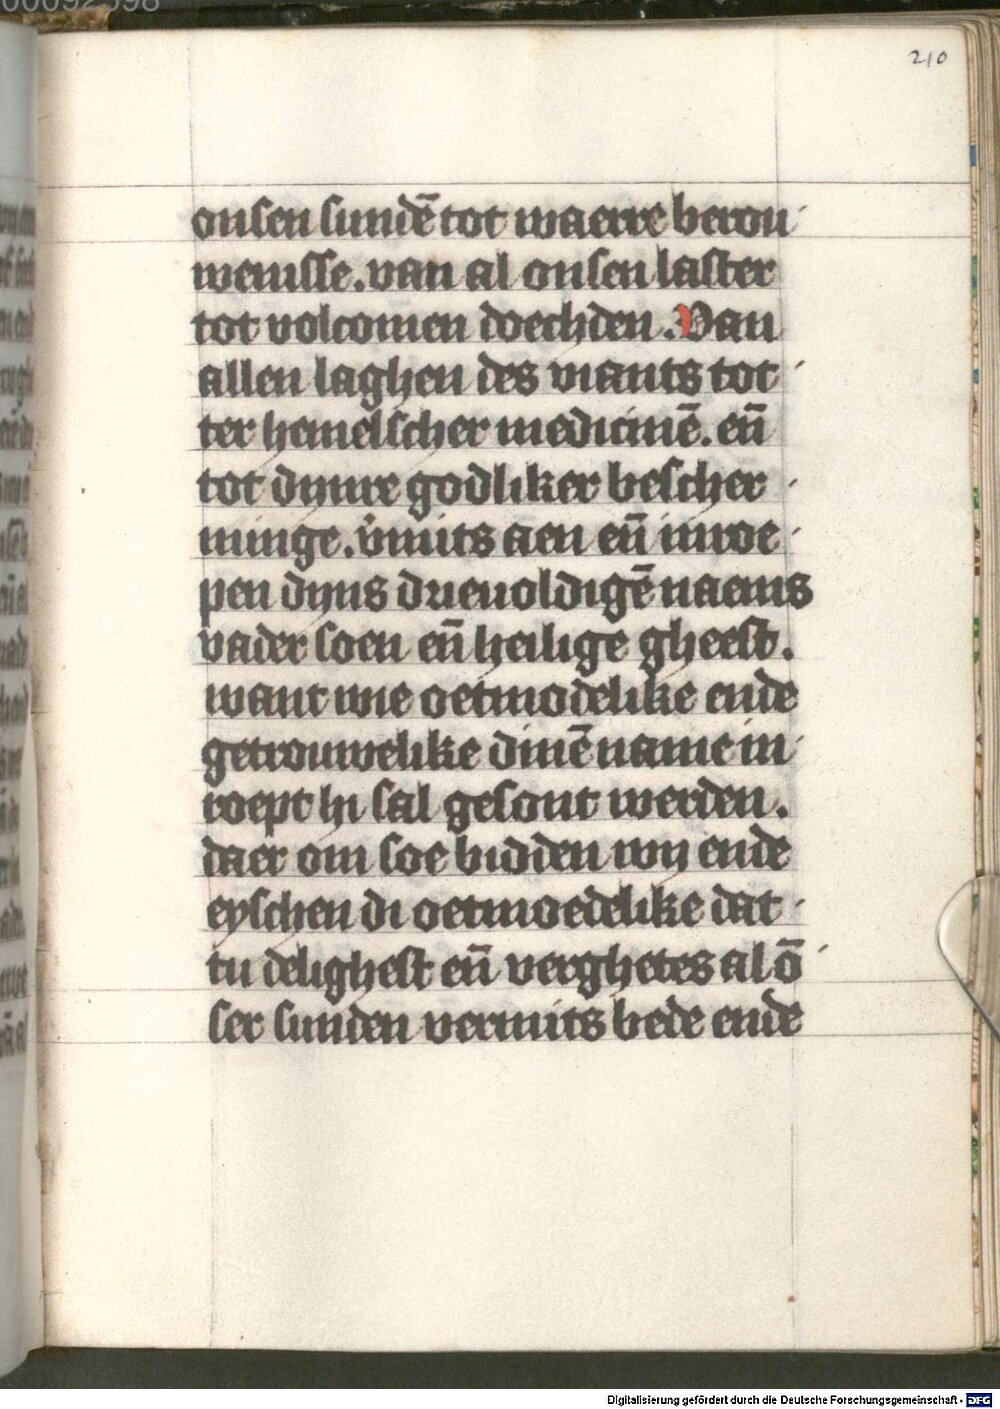 210
onsen sundē tot waerre berou
wenisse. van al onsen laster
tot volcomen doechden. Van
allen laghen des viants tot
ter hemelscher medicinē. en̄
tot dynre godliker bescher
minge. v̉mits aen en̄ inroe
pen dyns drieuoldigē naems
vader soen en̄ heilige gheest.
want wie oetmodelike ende
getrouwelike dinē name in
roept hi sal gesont werden.
daer om soe bidden wy ende
eyschen di oetmoedelike dat
tu delighest en̄ verghetes al ō
ser sunden vermits bede ende
Digitalisierung gefördert durch die Deutsche Forschungsgemeinschaft - DFG